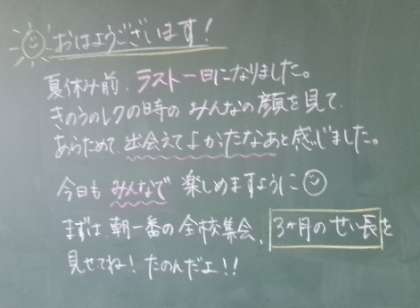 おはようございます!
夏休み前、ラスト一日になりました。
きのうのレクの時の みんなの顔を見て、
あらためて 出会えてよかったなあと感じました。
今日も みんなで 楽しめますように☺
まずは 朝一番の全校集会、3ヶ月のせい長を
見せてね! たのんだよ!!